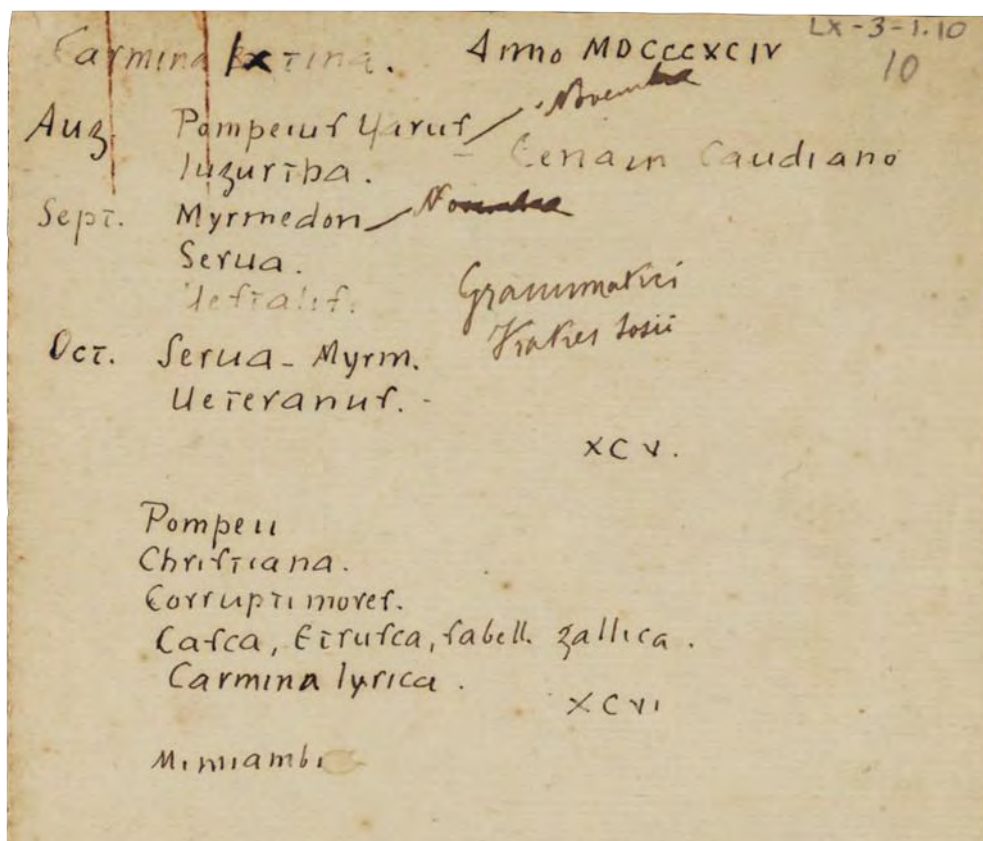 Carmina Latina. Anno MDCCCXCIV
LX-3-1.10
10
Aug. Pompeius Varus - Novembre
Iugurtha. - Cena in Caudiano
Sept. Myrmedon - Novembre
Serua.
Uestalis.
Oct. Serua - Myrm.
Ueteranus. -
Grammatici
Fratres Sosii
XCV.
Pompeii
Christiana.
Corrupti mores.
Casca, Etrusca, sabell. gallica.
Carmina lyrica.
XCVI
Mimiambi